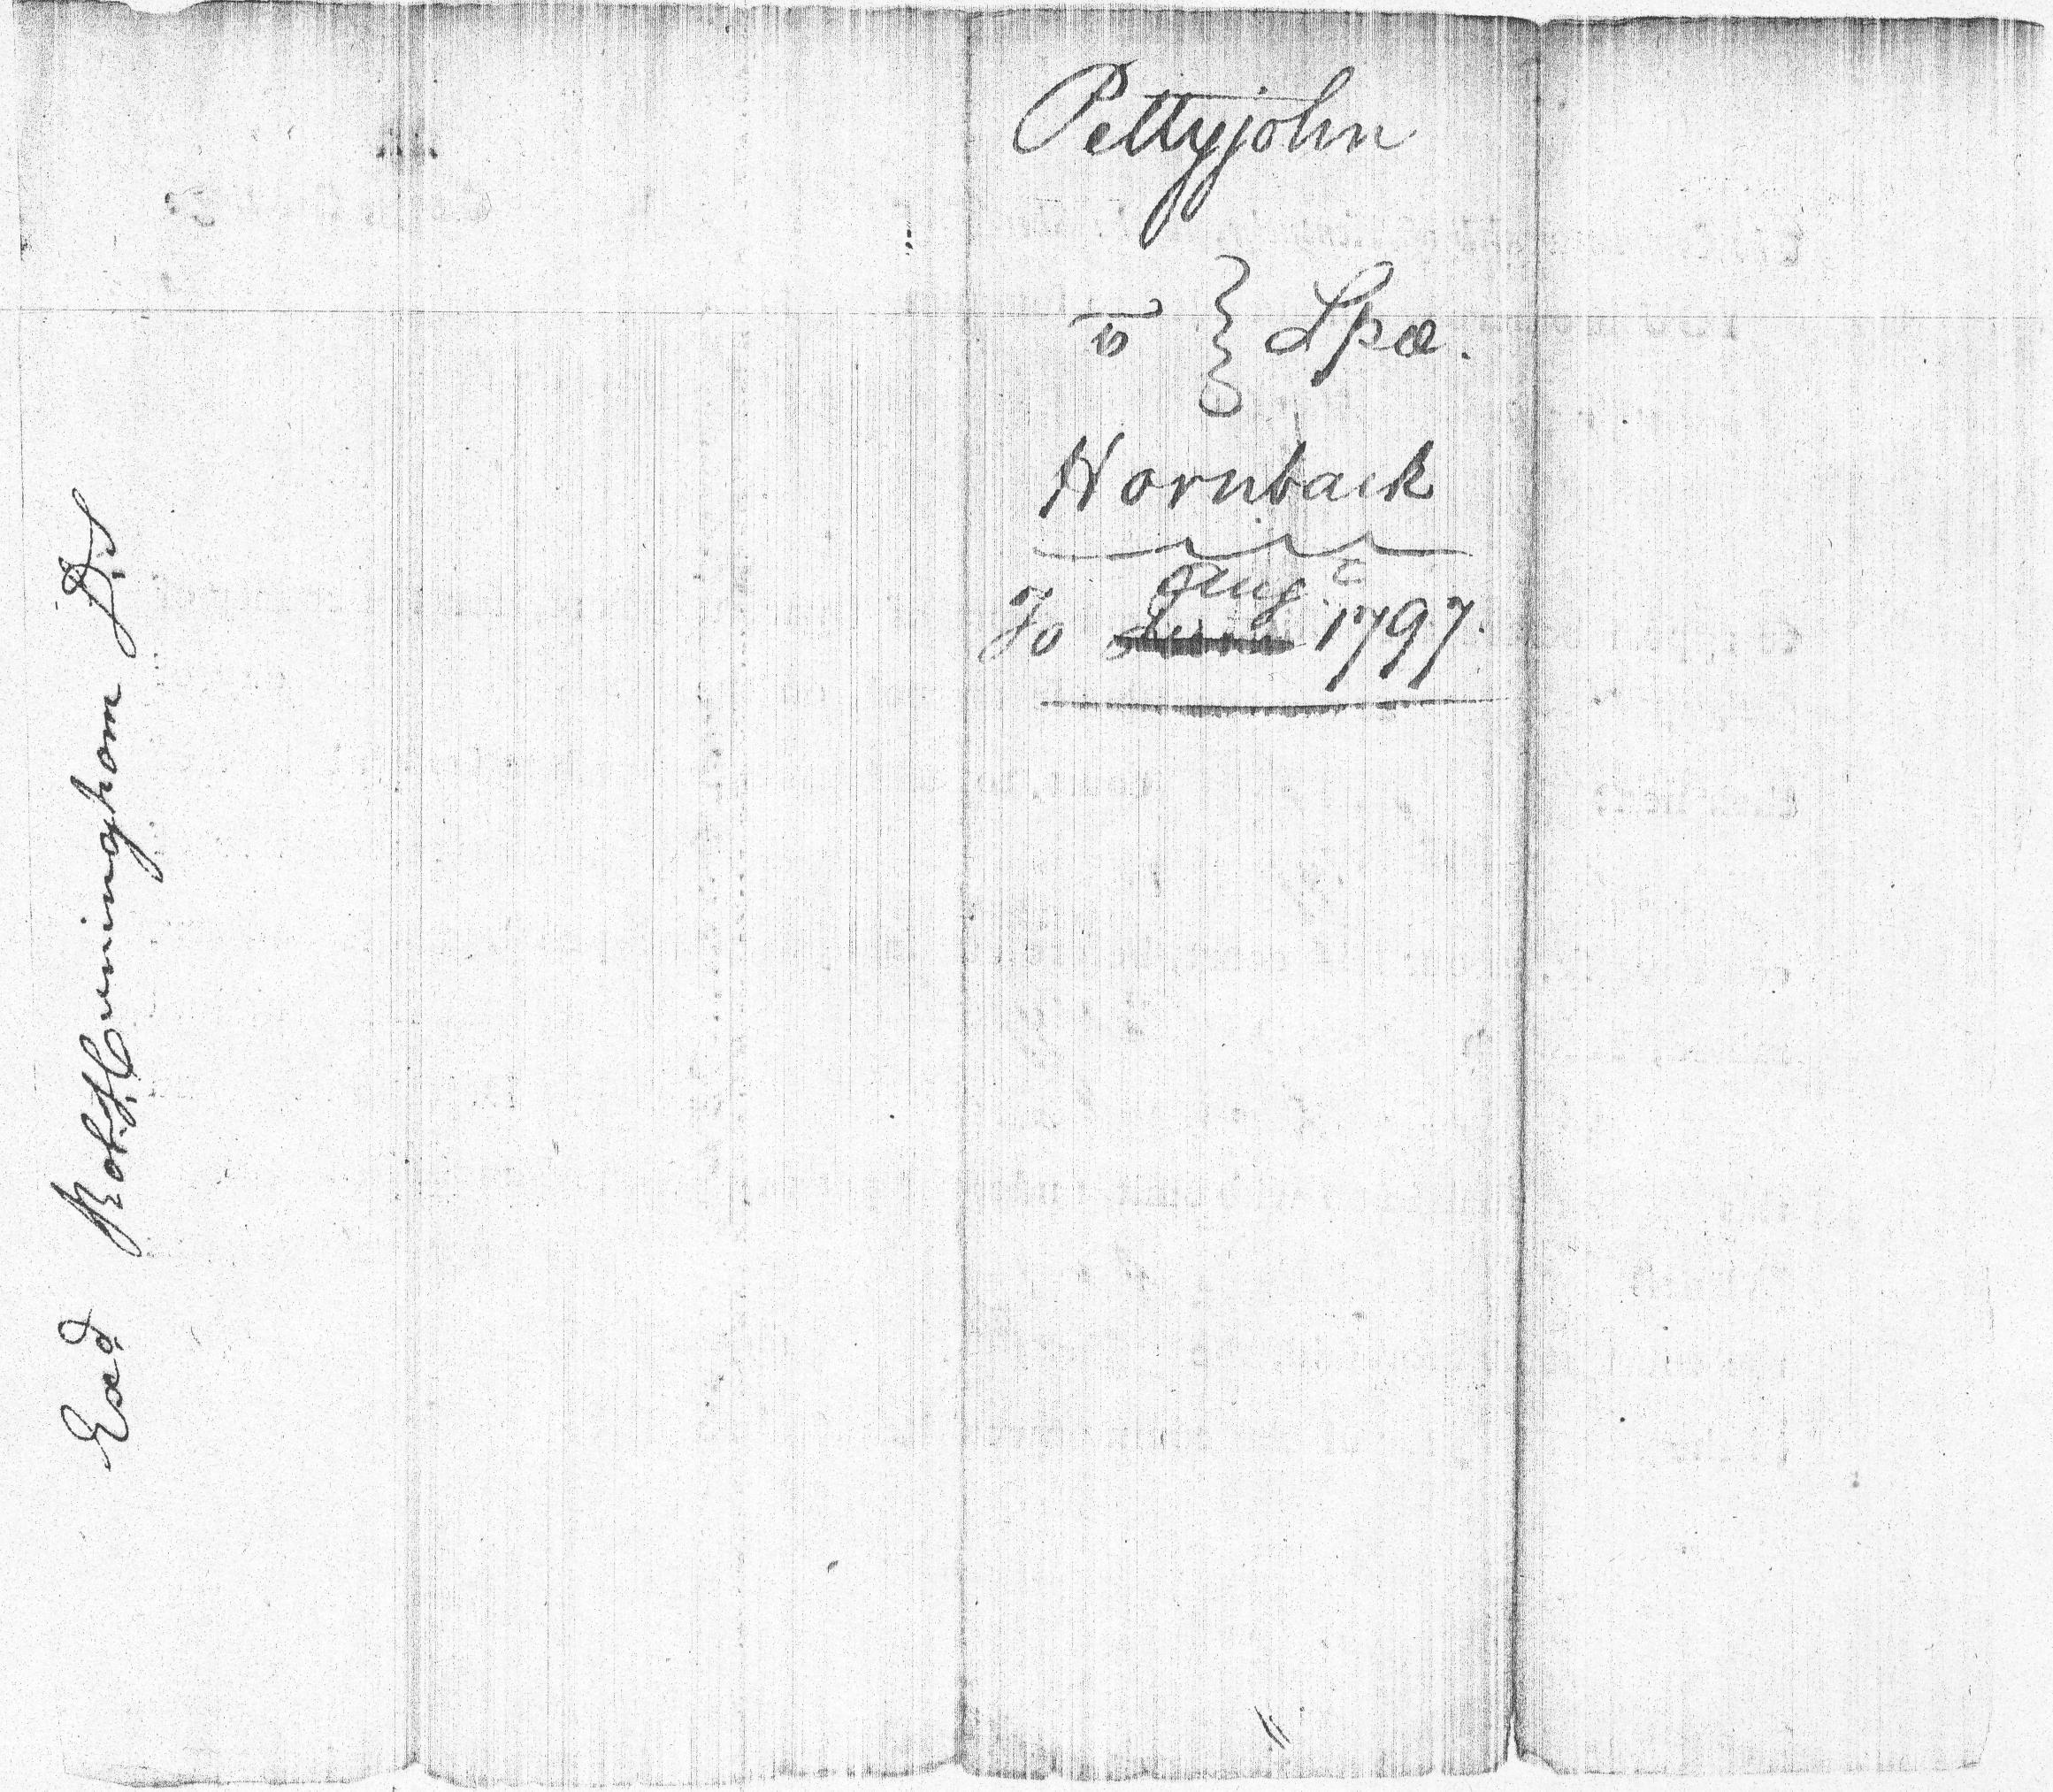 Pettyjohn
vs } Spa.
Hornback
Augt
To June 1797.
Exd Robt Cunningham D.S